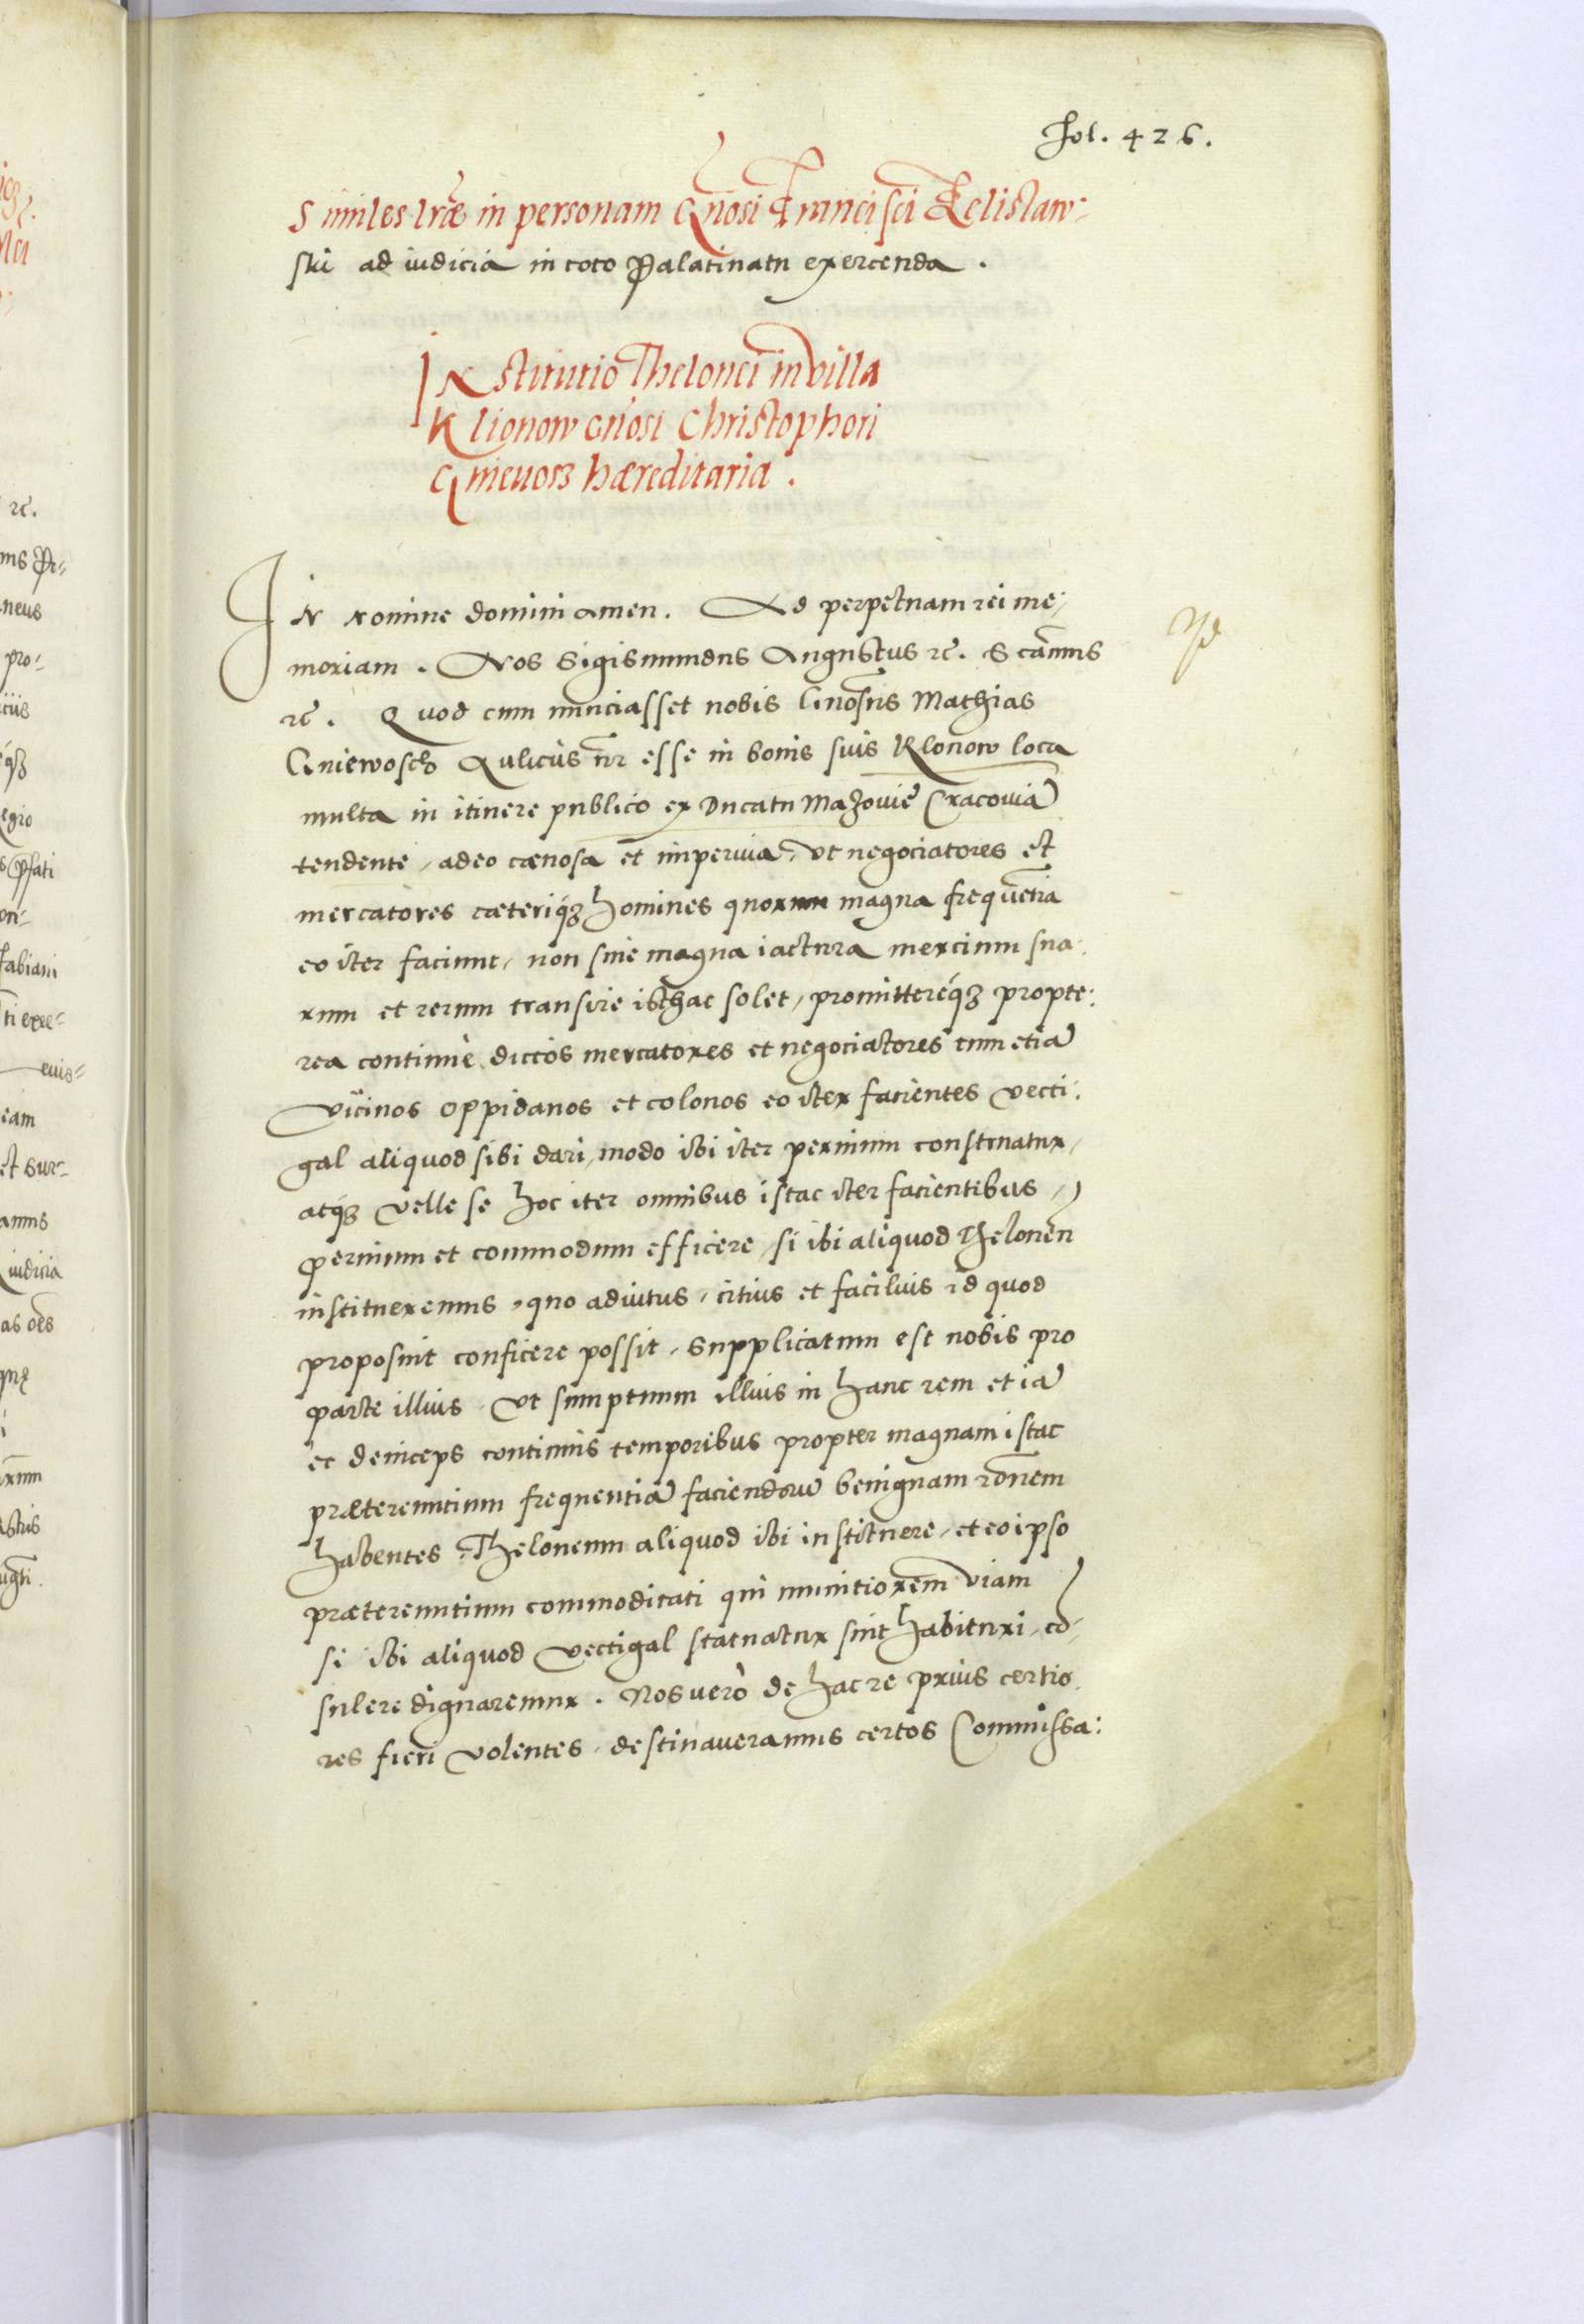 fol. 426.
Similes lr̃æ in personam Gñosi Francisci Zelislaw:
ski ad iudicia in toto Palatinatu exercenda.
INstitutio Thelonei in villa
Klionow Gñosi Christophori
Gnieuosz hæreditaria.
IN nomine domini amen. Ad perpetuam rei me:
moriam. Nos Sigismundus Augustus etc̃. S cãmus
etc̃. Quod cum nunciasset nobis Gnõsus Mathias
Gniewosch Aulicus ñr esse in bonis suis Klonow loca
multa in itinere publico ex Ducatu Mazouiẽ Cracouiã
tendente, adeo cœnosa et imperuia, ut negociatores et
mercatores cæteriq́ꝫ homines quorum magna frequẽtia
eo iter faciunt, non sine magna iactura mercium sua:
rum et rerum transire isthac solet, promittereq́ꝫ propte:
rea continuè dictos mercatores et negociatores cum etiã
vicinos oppidanos et colonos eo iter facientes vecti:
gal aliquod sibi dari, modo ibi iter peruium construatur,
atq́ꝫ velle se hoc iter omnibus istac iter facientibus,
peruium et commodum efficere, si ibi aliquod Theloneũ
institueremus, quo adiutus, citius et facilius id quod
proposuit conficere possit, supplicatum est nobis pro
parte illius, ut sumptuum illius in hanc rem et iã
et deinceps continuis temporibus propter magnam istac
prætereuntium frequentiã faciendorũ benignam rõnem
habentes Theloneum aliquod ibi instituere, et eo ipso
prætereuntium commoditati qui munitiorem viam
si ibi aliquod vectigal statuatur sint habituri, cõ:
sulere dignaremur. Nos verò de hac re prius certio:
res fieri volentes, destinaueramus certos Commissa: